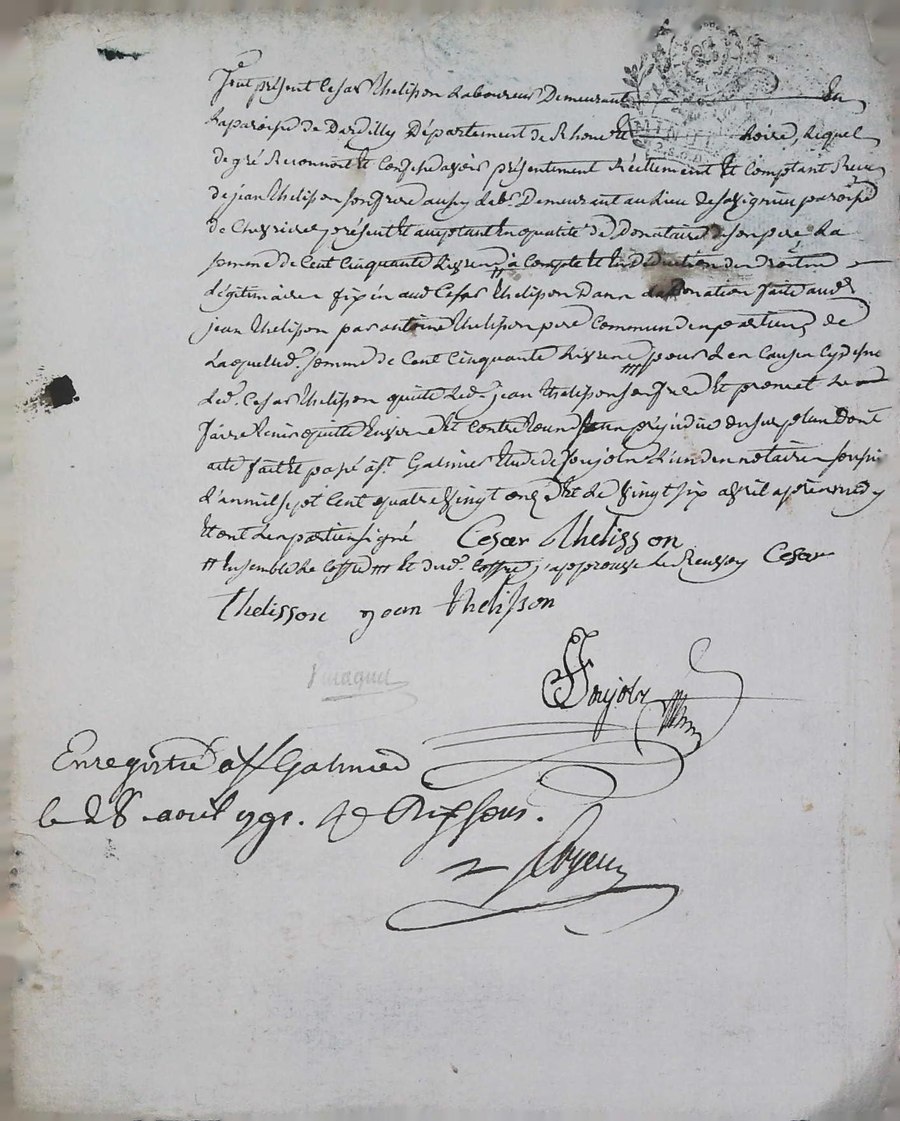 Fut présent Cesar Thelisson Laboureur Demeurant en
La paroisse de Dardilly Département de Rhone et Loire, Lequel
de gré Reconnoit et Confesse avoir présentement Réellement et Comptant Reçu
de jean Thelisson son frere aussy lab.r Demeurant au Lieu de savignieu paroisse
de Chevrieres présent et acceptant en qualité de Donataire de son pere La
somme de Cent Cinquante Livres # à Compte et en Déduction des droits
Légitimaires fixés aud. Cesar Thelisson Dans la Donation faite aud.
jean Thelisson par antoine Thelisson pere Commun des parties, de
Laquelle d. somme de Cent Cinquante Livres # pour les Causes cy desus
Led. Cesar Thelisson quitte Led. jean Thelisson son frere et promet Le
faire tenir quitte Envers et Contre tous sans préjudice du surplus Dont
acte fait et passé à S.t Galmier Etude de Soujols L'un des notaires sousignés
L'an mil sept Cent quatre vingt onze et Le vingt six avril après midy
et ont Les parties signé Cesar Thelisson
# Ensemble Le Coffre # et dud. Coffre j'approuve Le Renvoy Cesar
Thelisson jean thelisson
Soujols
Enregistré à S.t Galmier
le 28 avril 1791.